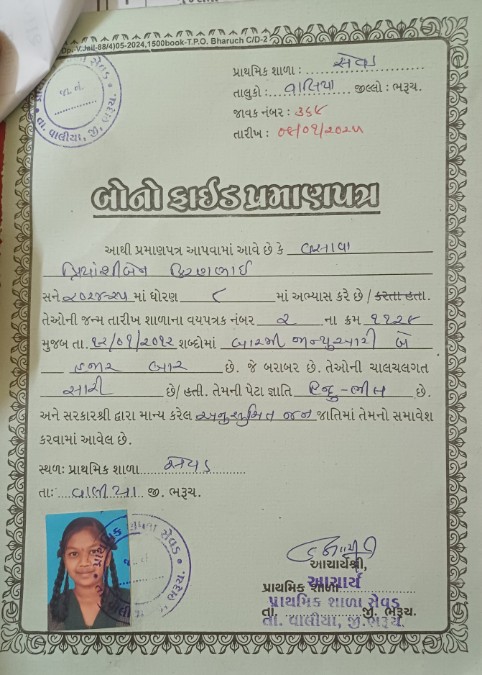 Op. V.Jail-88(4)05-2024,1500book-T.P.O. Bharuch C/D-2
પ્રાથમિક શાળા : સેવડ
તાલુકો : વાલિયા જીલ્લો : ભરૂચ.
જાવક નંબર : ૩૬૪
તારીખ : ૦૬/૦૧/૨૦૨૫
તા. વાલીયા, જી. ભરૂચ.
બોનો ફાઇડ પ્રમાણપત્ર
આથી પ્રમાણપત્ર આપવામાં આવે છે કે વસાવા
પ્રિયાંશીબેન કિરણભાઈ
સને ૨૦૨૪-૨૫ માં ધોરણ ૮ માં અભ્યાસ કરે છે / કરતા હતા.
તેઓની જન્મ તારીખ શાળાના વયપત્રક નંબર ૨ ના ક્રમ ૧૧૨૪
મુજબ તા. ૧૨/૦૧/૨૦૧૨ શબ્દોમાં બારમી જાન્યુઆરી બે
હજાર બાર છે. જે બરાબર છે. તેઓની ચાલચલગત
સારી છે/ હતી. તેમની પેટા જ્ઞાતિ હિન્દુ-ભીલ છે.
અને સરકારશ્રી દ્વારા માન્ય કરેલ અનુસુચિત જન જાતિમાં તેમનો સમાવેશ
કરવામાં આવેલ છે.
સ્થળઃ પ્રાથમિક શાળા સેવડ
તાઃ વાલીયા જી. ભરૂચ.
આચાર્યશ્રી,
આચાર્ય
પ્રાથમિક શાળા
પ્રાથમિક શાળા સેવડ
તા. જી. ભરૂચ.
તા. વાલીયા, જી.ભરૂચ.